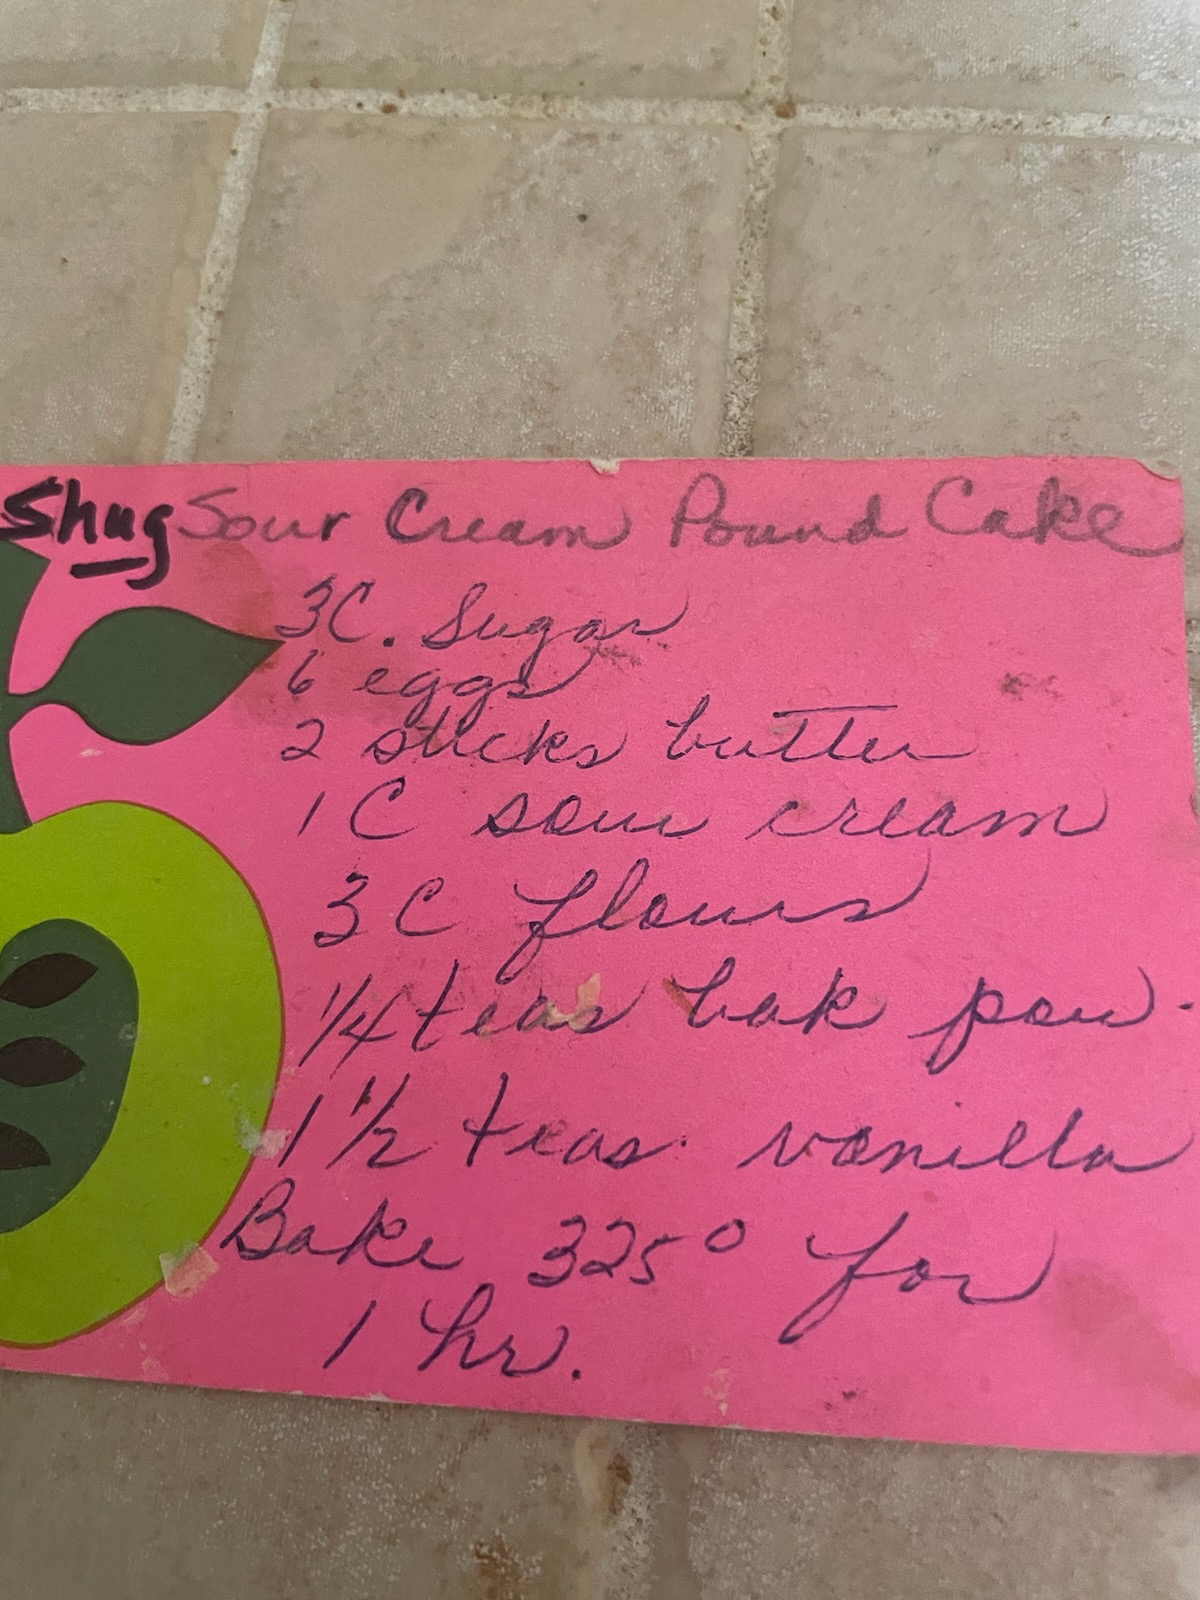 Shug Sour Cream Pound Cake
3C. Sugar
6 eggs
2 sticks butter
1 C sour cream
3 C flour
1/4 teas bak pow.
1 1/2 teas. vanilla
Bake 325° for
1 hr.